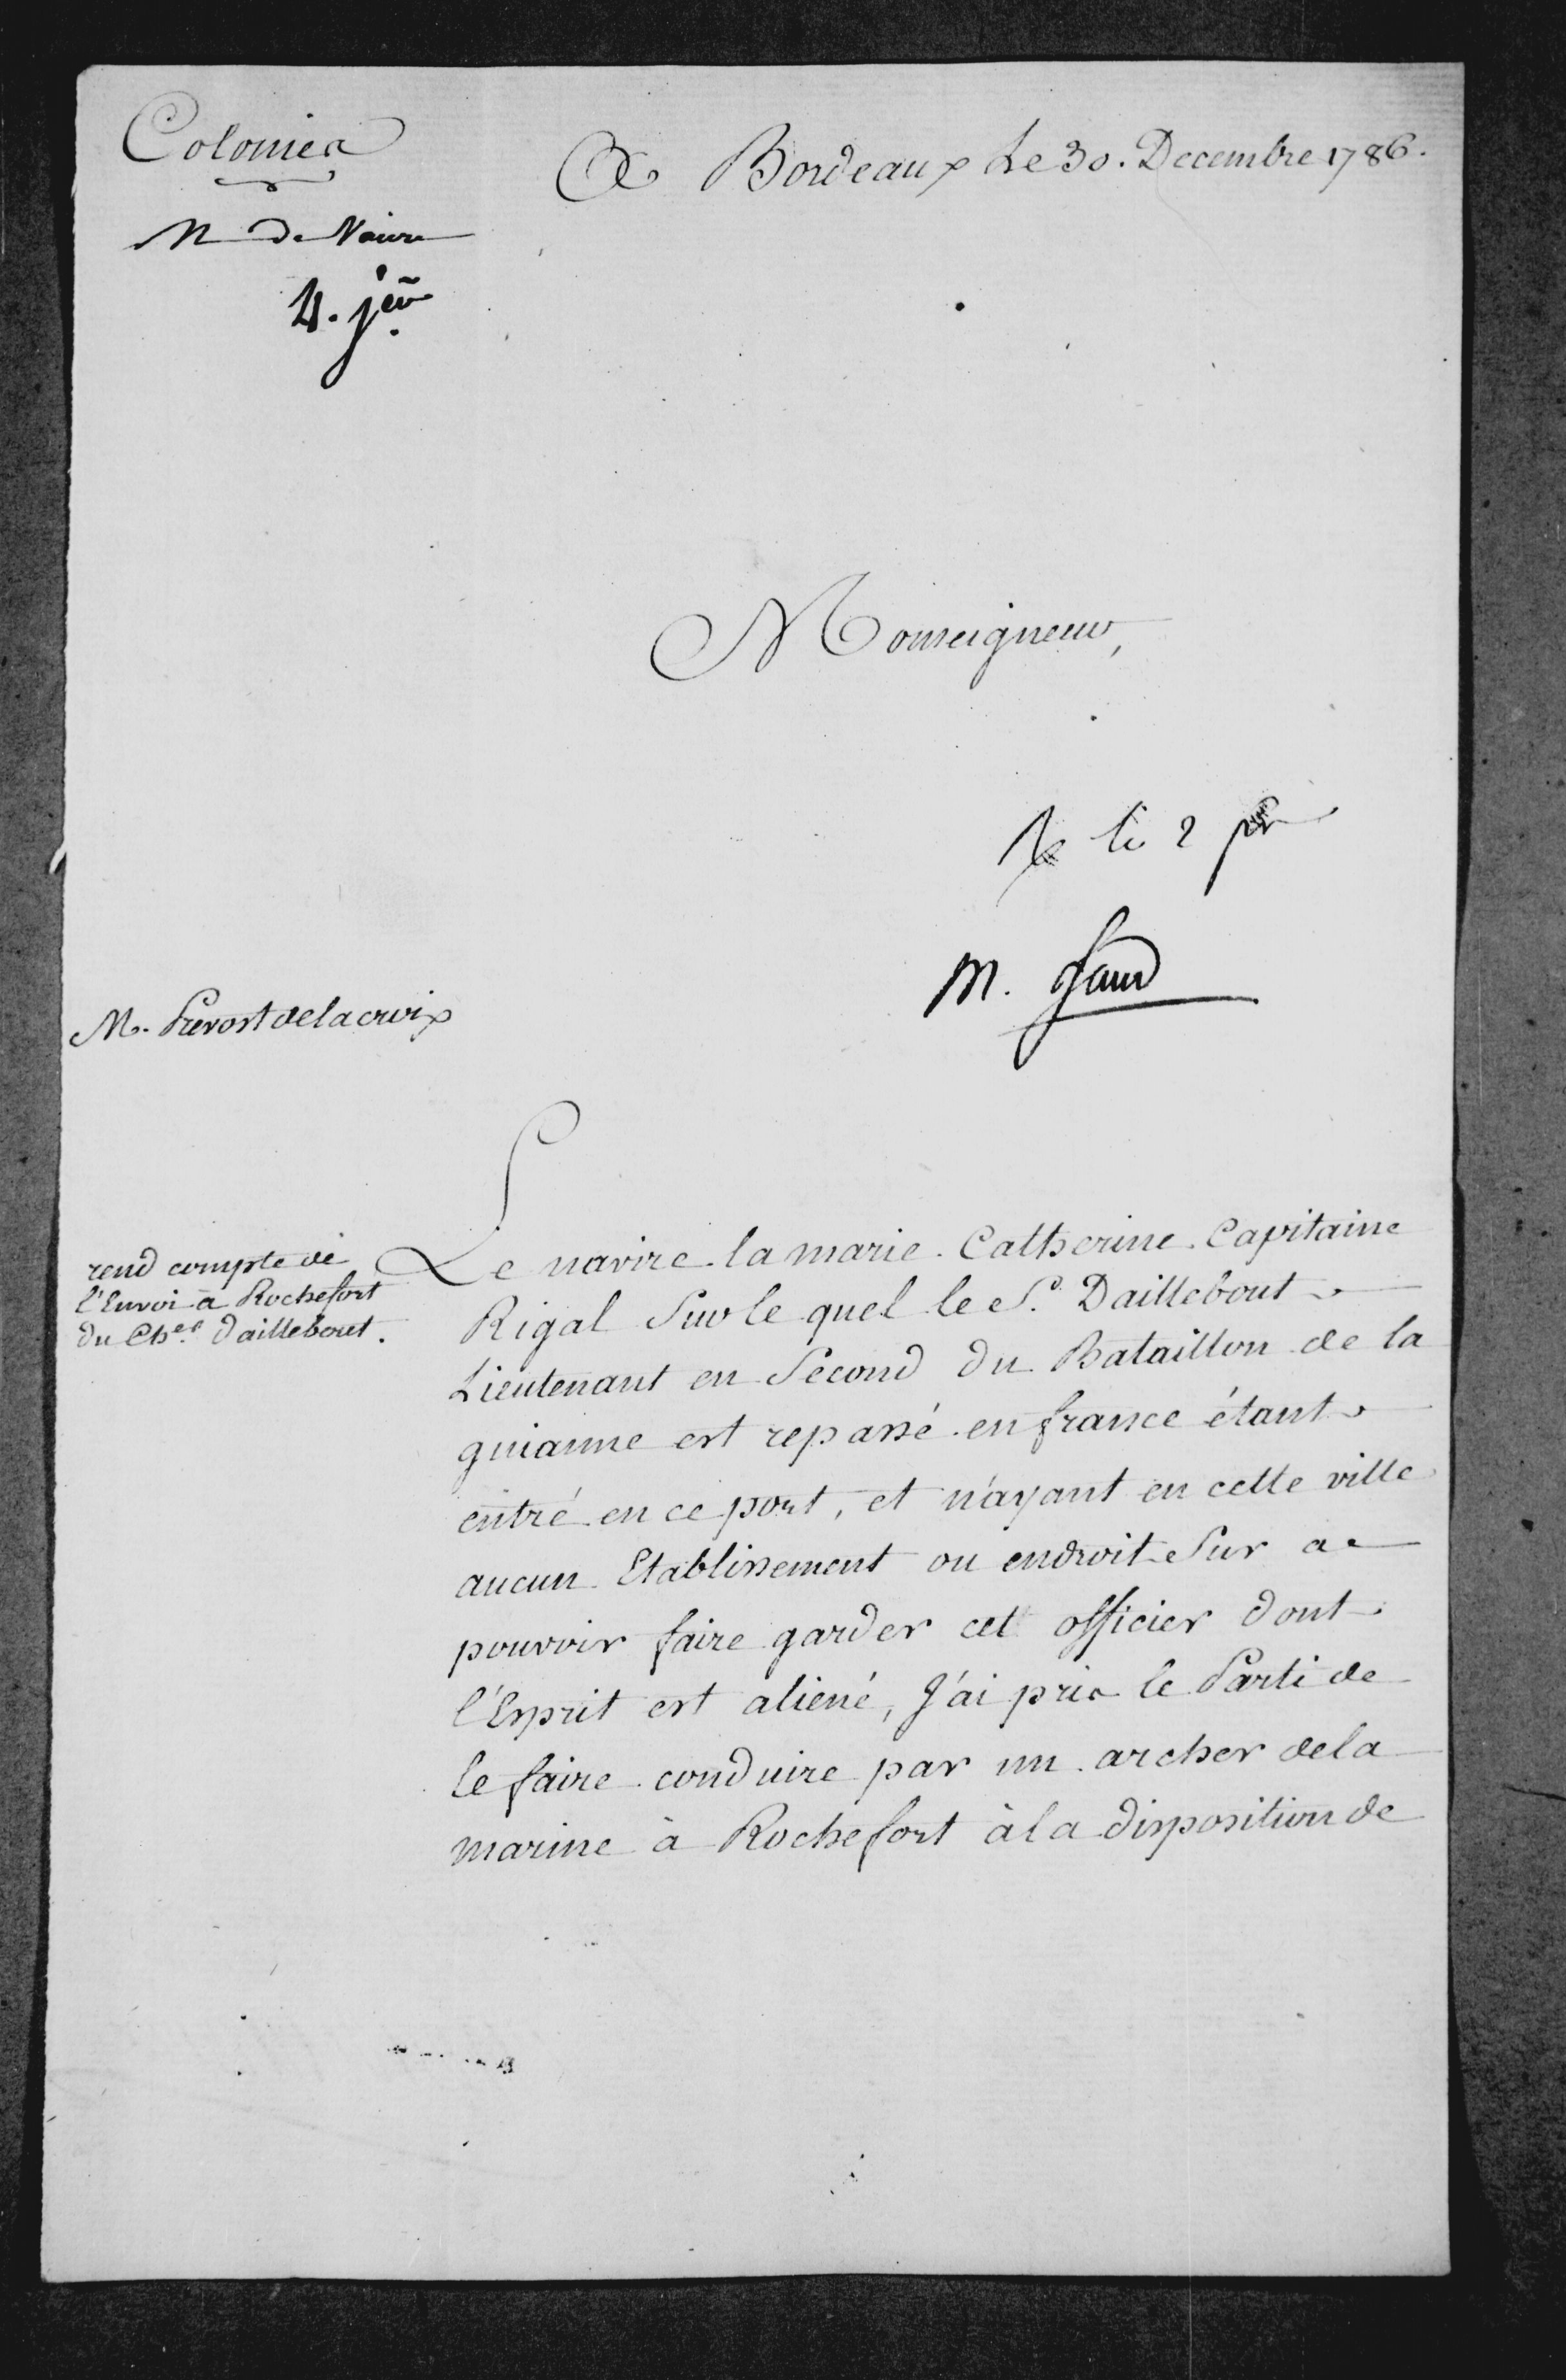 Colonies
A Bordeaux Le 30. Decembre 1786.
M de Vaivre
4. jer
Monseigneur,
le 2
M.
M. Prevost de la croix
rend compte de
l'Envoi à Rochefort
du Cher daillebout.
Le navire la marie Catherine Capitaine
Rigal Sur le quel le S. Daillebout
Lieutenant en Second du Bataillon de la
guianne est repassé en france étant
entré en ce port, et n'ayant en cette ville
aucun Etablissement ou endroit Sur a
pouvoir faire garder cet officier dont
l'Esprit est aliené, J'ai pris le Parti de
le faire conduire par un archer de la
marine à Rochefort à la disposition de